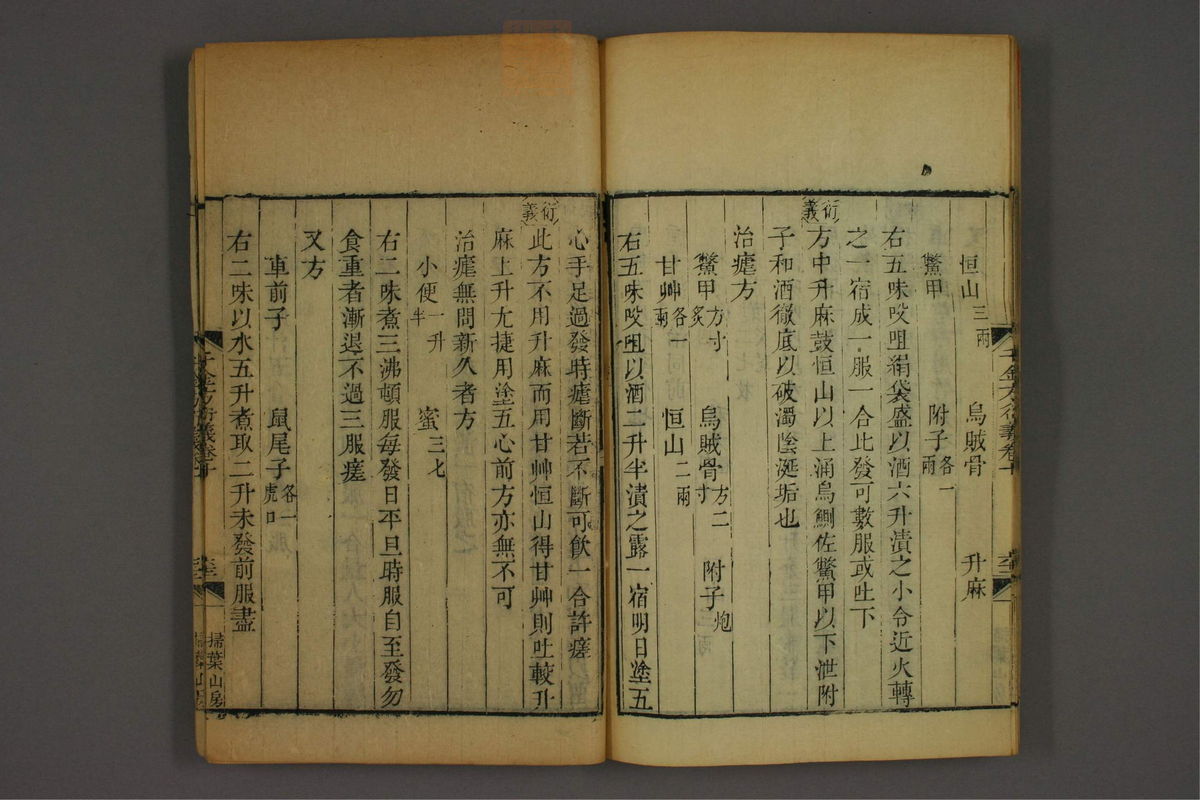 恒山三兩 烏賊骨 升麻
鱉甲 附子各一兩
右五味㕮咀絹袋盛以酒六升漬之小令近火轉
之一宿成一服一合比發可數服或吐下
衍義
方中升麻鼓恒山以上涌烏鰂佐鱉甲以下泄附
子和酒徹底以破濁陰涎垢也
治瘧方
鱉甲方寸炙 烏賊骨方二寸 附子炮
甘艸各一兩 恒山二兩
右五味㕮咀以酒二升半漬之露一宿明日塗五
心手足過發時瘧斷若不斷可飲一合許瘥
衍義
此方不用升麻而用甘艸恒山得甘艸則吐較升
麻上升尤捷用塗五心前方亦無不可
治瘧無問新久者方
小便一升半 蜜三七
右二味煮三沸頓服每發日平旦時服自至發勿
食重者漸退不過三服瘥
又方
車前子 鼠尾子各一虎口
右二味以水五升煮取二升未發前服盡
千金方衍義卷十
掃葉山房